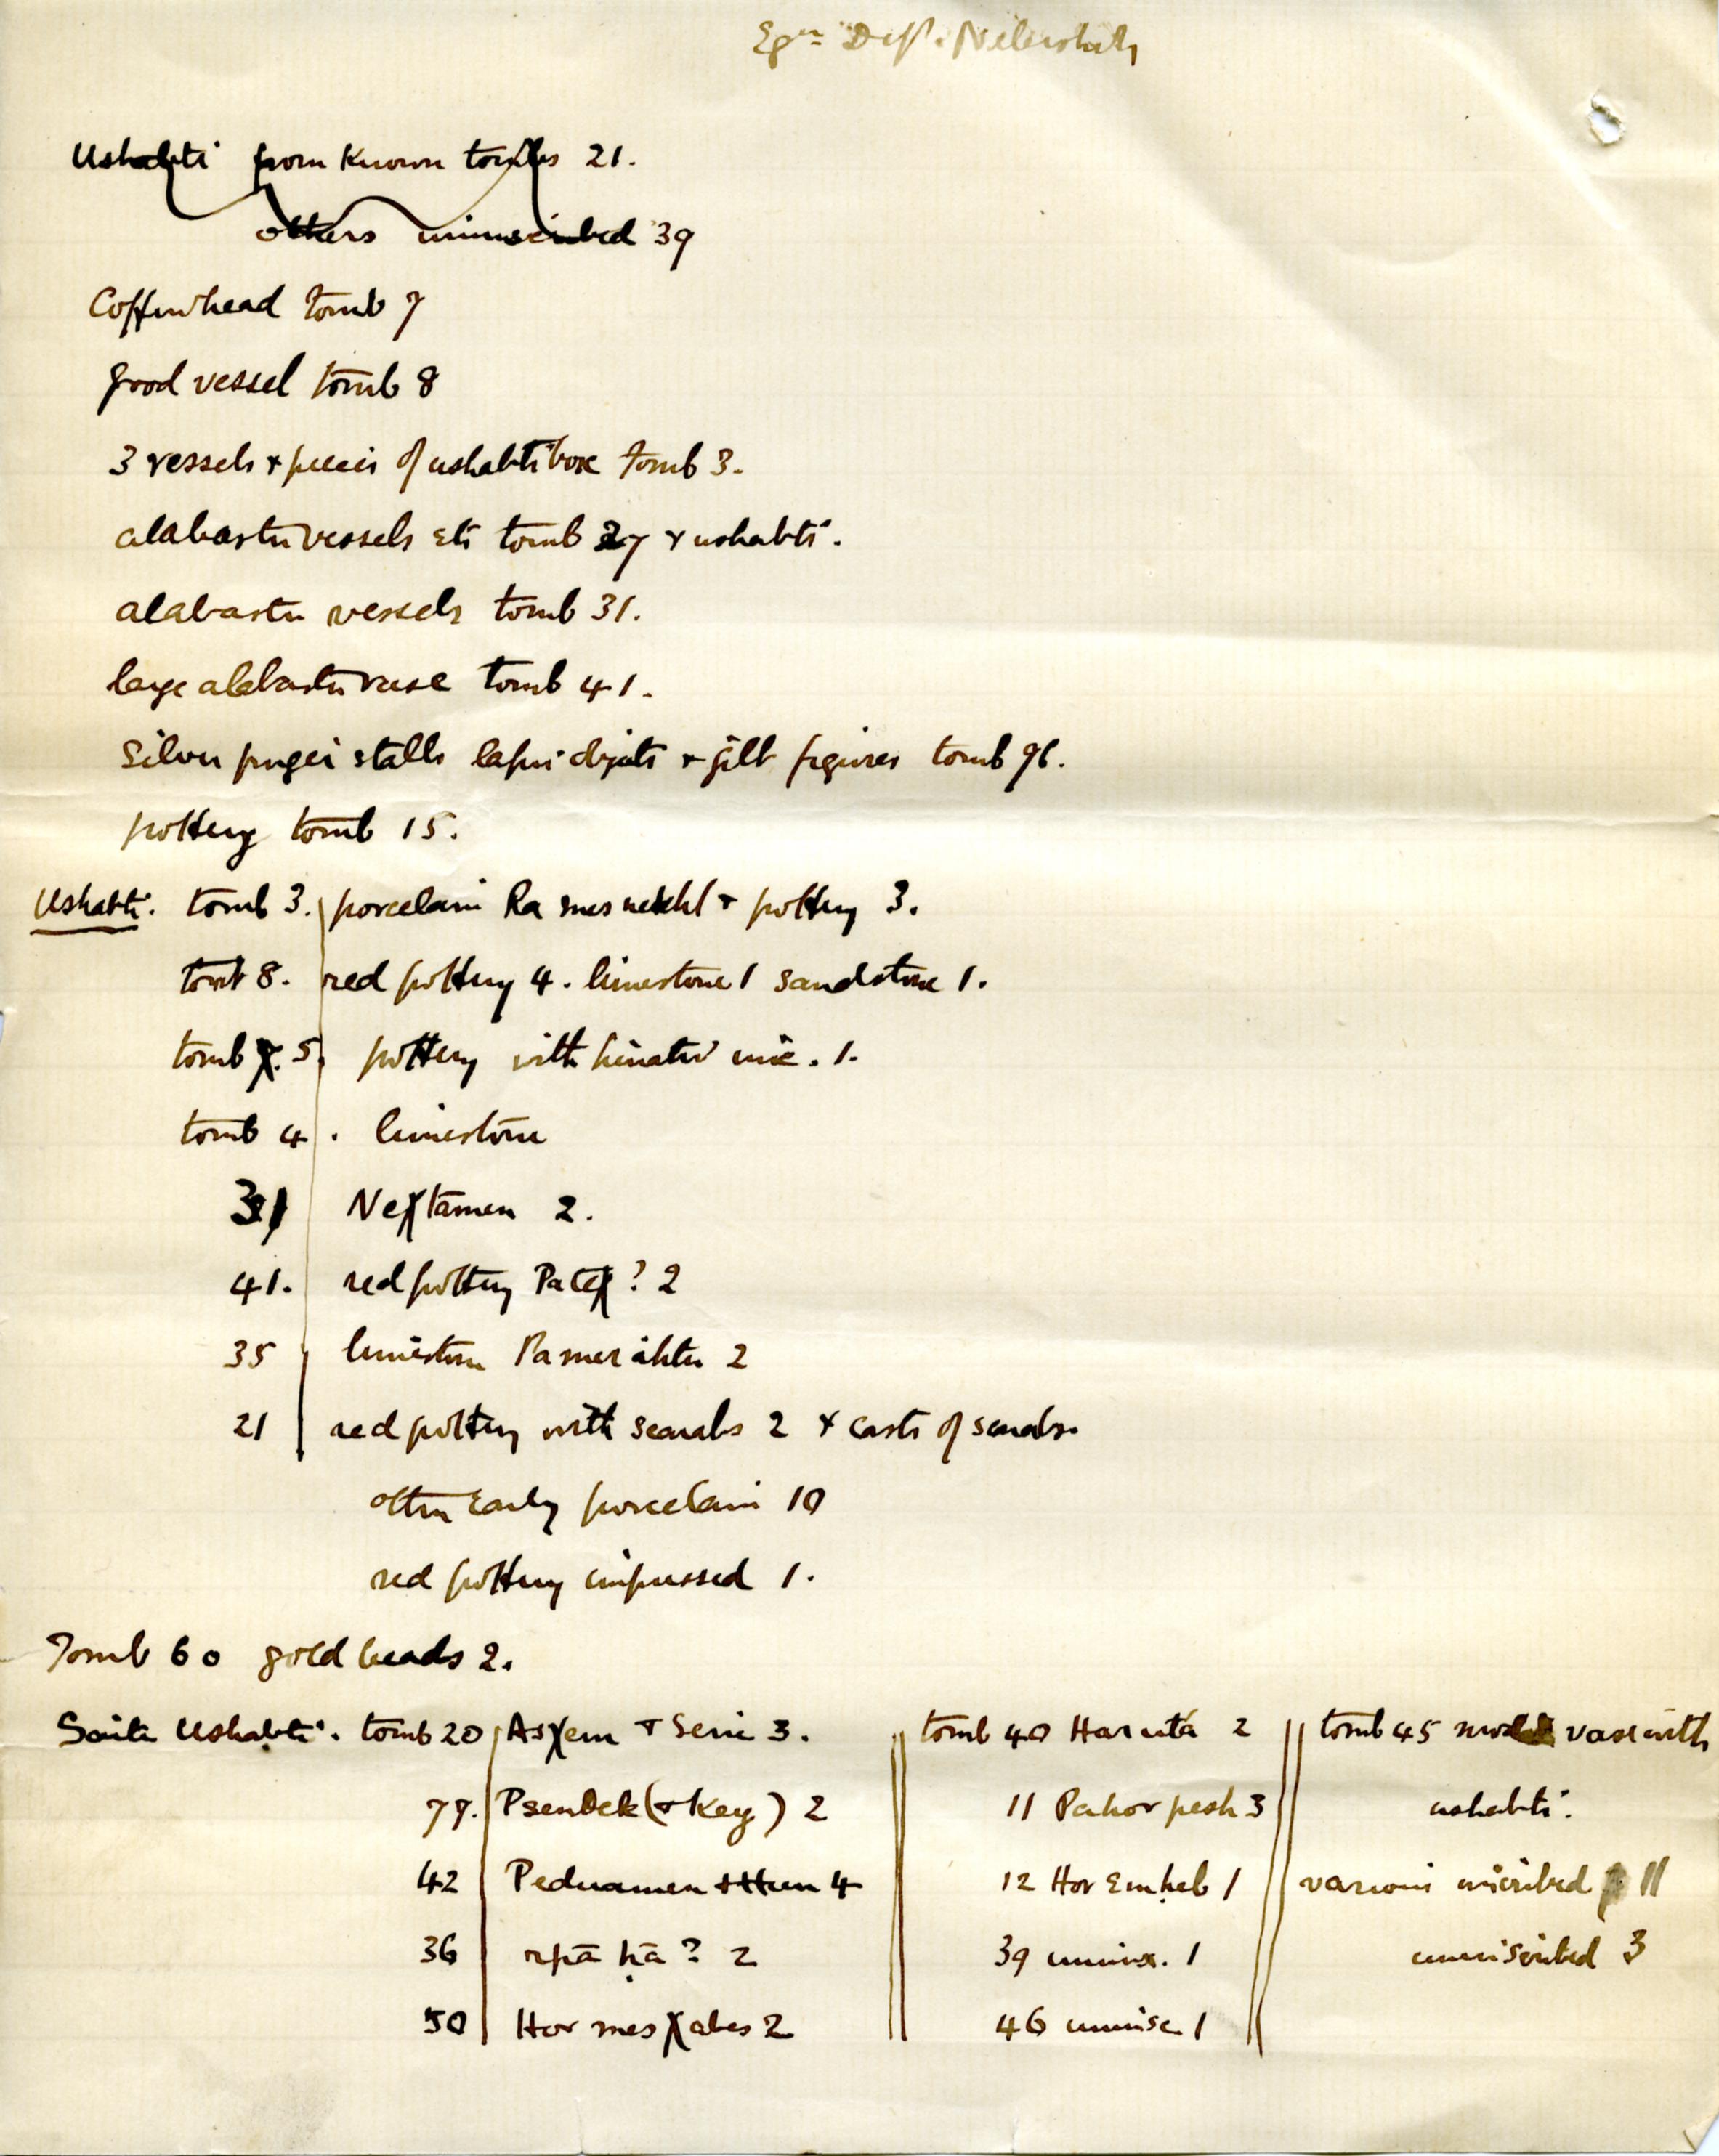 Egn Dept. Nebesheh
Ushabti from Known tombs 21.
others uninscribed 39
Coffin head tomb 7
good vessel tomb 8
3 vessels + pieces of ushabti box tomb 3.
alabaster vessels etc tomb 27 + ushabti.
alabaster vessels tomb 31.
large alabaster vase tomb 41.
Silver finger stalls lapis objects + gilt figures tomb 96.
pottery tomb 15.
Ushabti. tomb 3. porcelain Ra mes nekht + pottery 3.
tomb 8. red pottery 4. limestone 1 sandstone 1.
tomb 5. pottery with hieratic insc. 1.
tomb 4. limestone
31 Neχtamen 2.
41. red pottery Pateχ? 2
35 limestone Pamerahtu 2
21 red pottery with scarabs 2 + casts of scarabs.
other Early porcelain 10
red pottery impressed 1.
Tomb 60 gold beads 2.
Saite Ushabti. tomb 20 Asχem + Serie 3. tomb 40 Haruta 2 tomb 45 model vase with
77. Psentek (+ Key) 2 11 Pahorpesh 3 ushabti.
42 Peduamen 4 12 Horemḥeb 1 various inscribed 11
36 rpā ḥā? 2 39 unins. 1 uninscribed 3
50 Hor mes χabes 2 46 uninsc 1